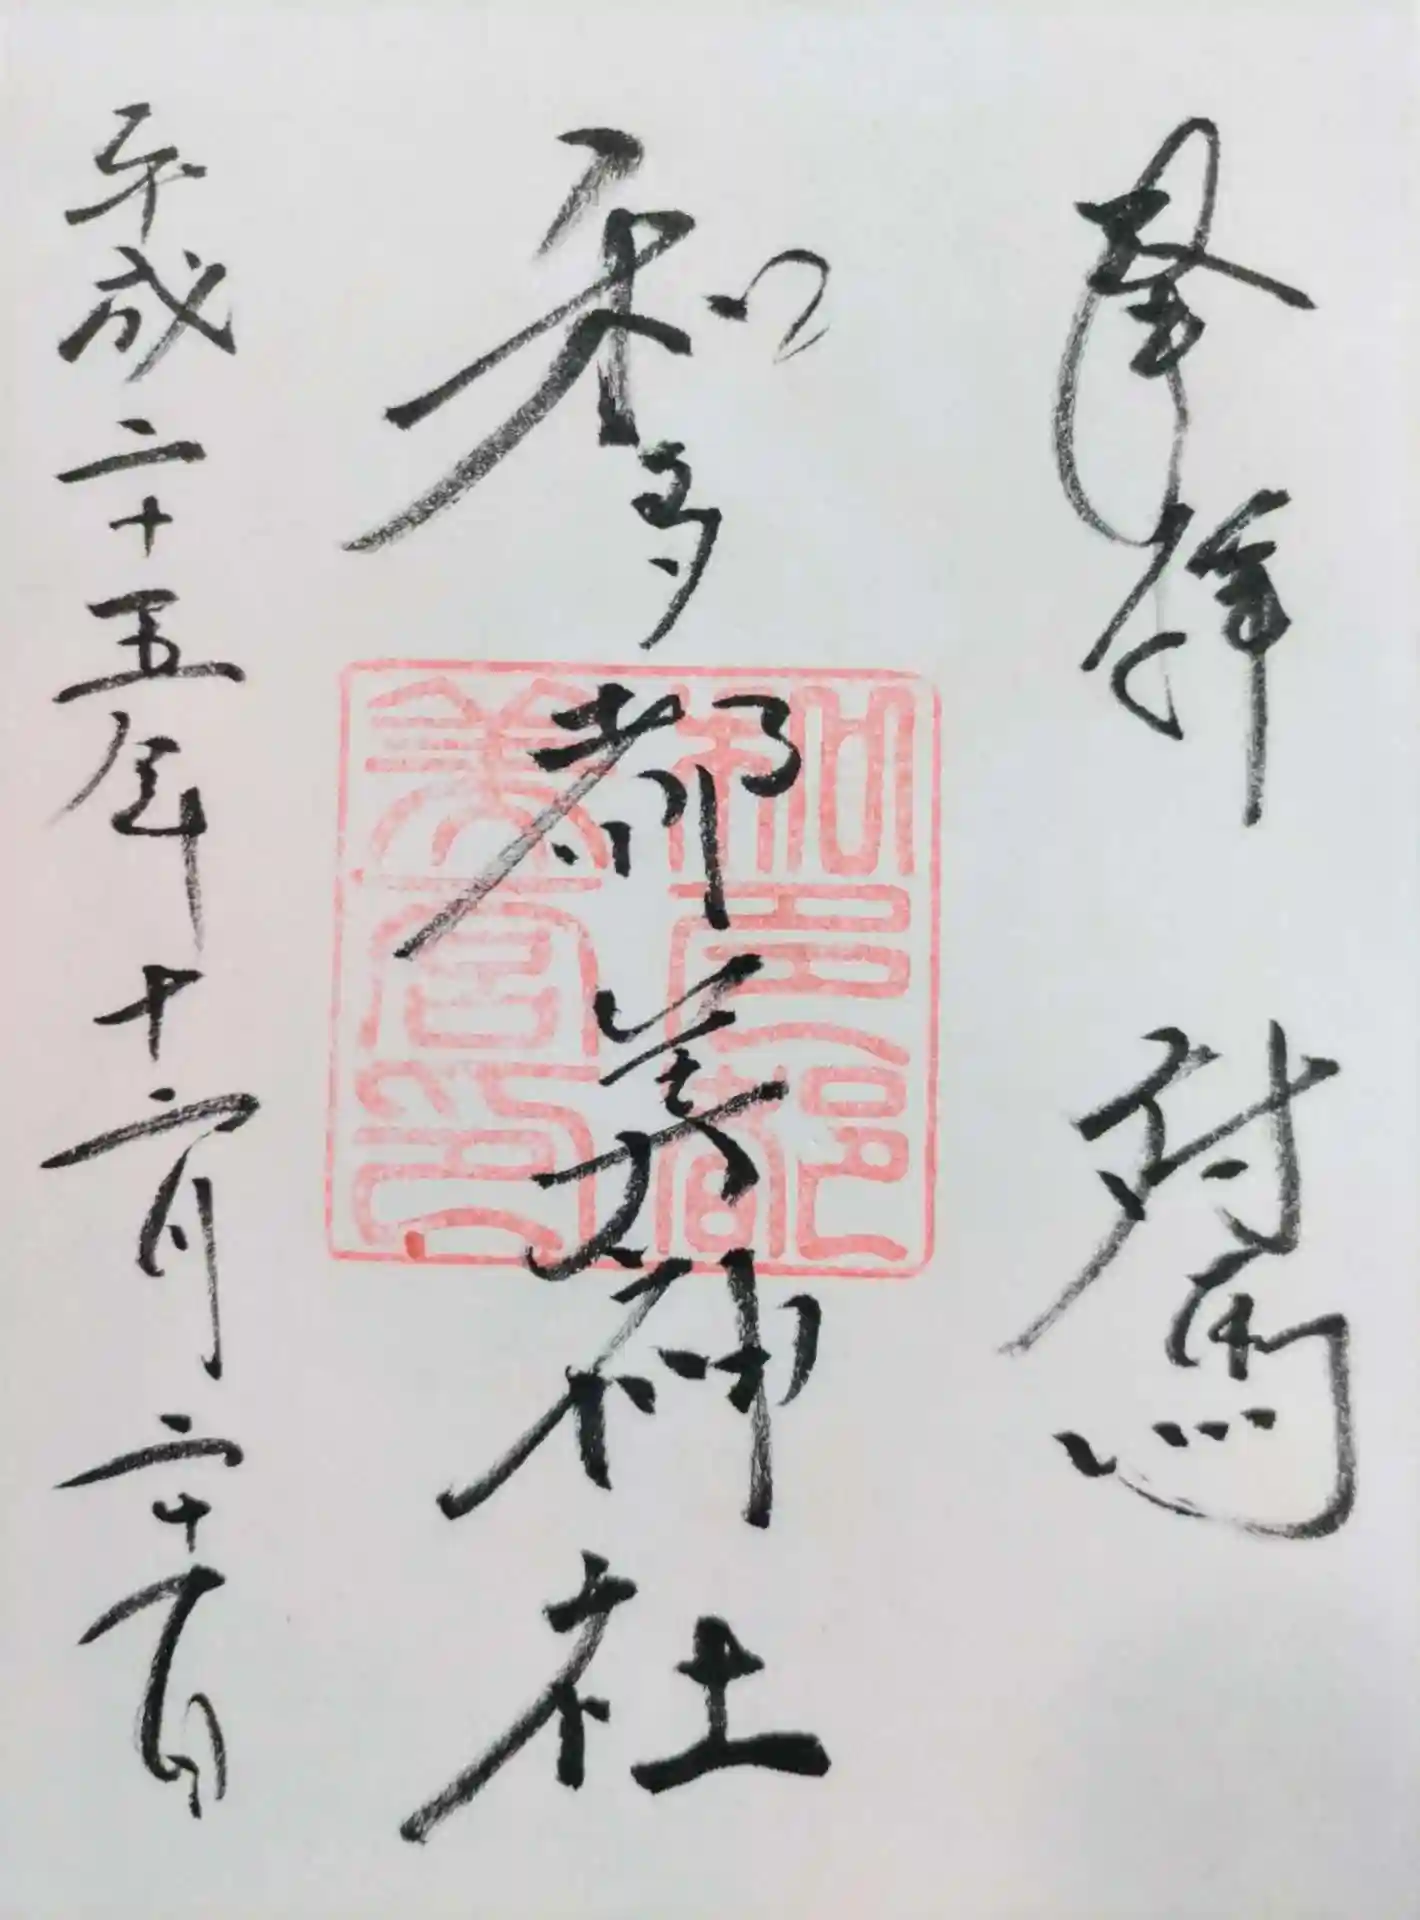 奉拝 対馬
和多都美神社
平成二十五年十二月二十一日
和多都
美宮印